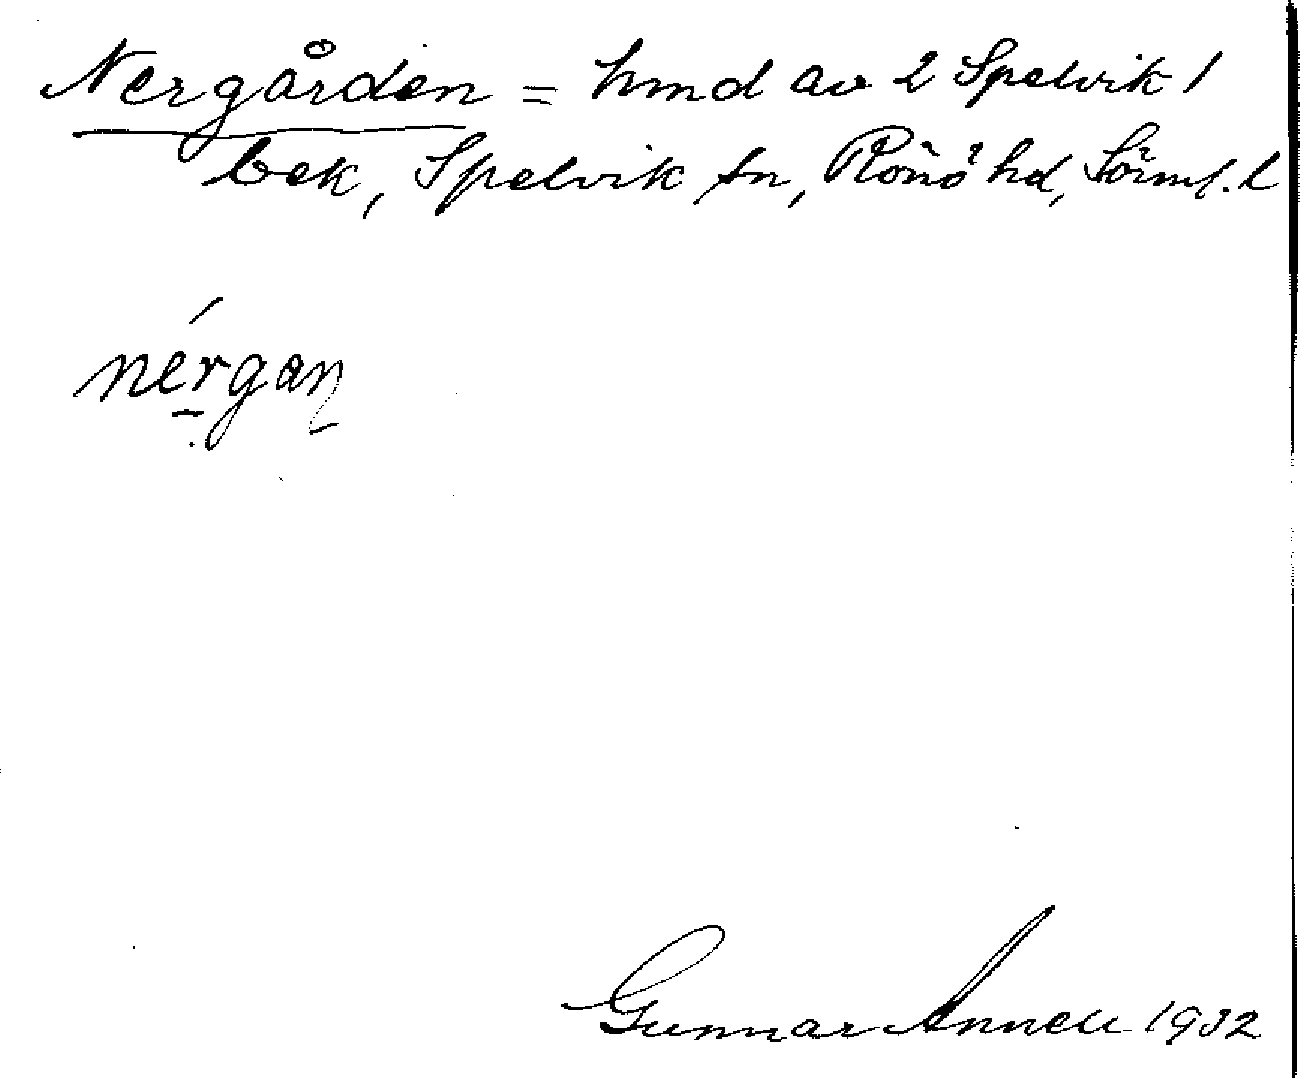 Nergården = hmd av 2 Spelvik 1
bek, Spelvik sn, Rönö hd, Sörml. l
nérgaɳ
Gunnar Annell 1932